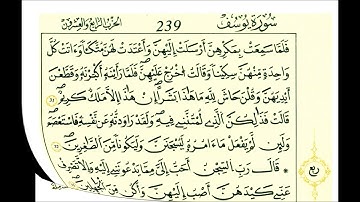 سُورَةُ يُوسُفَ 239 الحزب الرابع والعشرون
فَلَمَّا سَمِعَتْ بِمَكْرِهِنَّ أَرْسَلَتْ إِلَيْهِنَّ وَأَعْتَدَتْ لَهُنَّ مُتَّكَـًٔا وَءَاتَتْ كُلَّ
وَٰحِدَةٍ مِّنْهُنَّ سِكِّينًا وَقَالَتُ اخْرُجْ عَلَيْهِنَّ فَلَمَّا رَأَيْنَهُ أَكْبَرْنَهُ وَقَطَّعْنَ
أَيْدِيَهُنَّ وَقُلْنَ حَٰشَ لِلهِ مَا هَٰذَا بَشَرًا إِنْ هَٰذَا إِلَّا مَلَكٌ كَرِيمٌ ٣١
قَالَتْ فَذَٰلِكُنَّ الَّذِي لُمْتُنَّنِي فِيهِ وَلَقَدْ رَٰوَدتُّهُ عَن نَّفْسِهِ فَاسْتَعْصَمَ
وَلَئِن لَّمْ يَفْعَلْ مَا ءَامُرُهُ لَيُسْجَنَنَّ وَلَيَكُونًا مِّنَ الصَّٰغِرِينَ ٣٢
قَالَ رَبِّ السِّجْنُ أَحَبُّ إِلَيَّ مِمَّا يَدْعُونَنِي إِلَيْهِ وَإِلَّا تَصْرِفْ
عَنِّي كَيْدَهُنَّ أَصْبُ إِلَيْهِنَّ وَأَكُن مِّنَ الْجَٰهِلِينَ
ربع